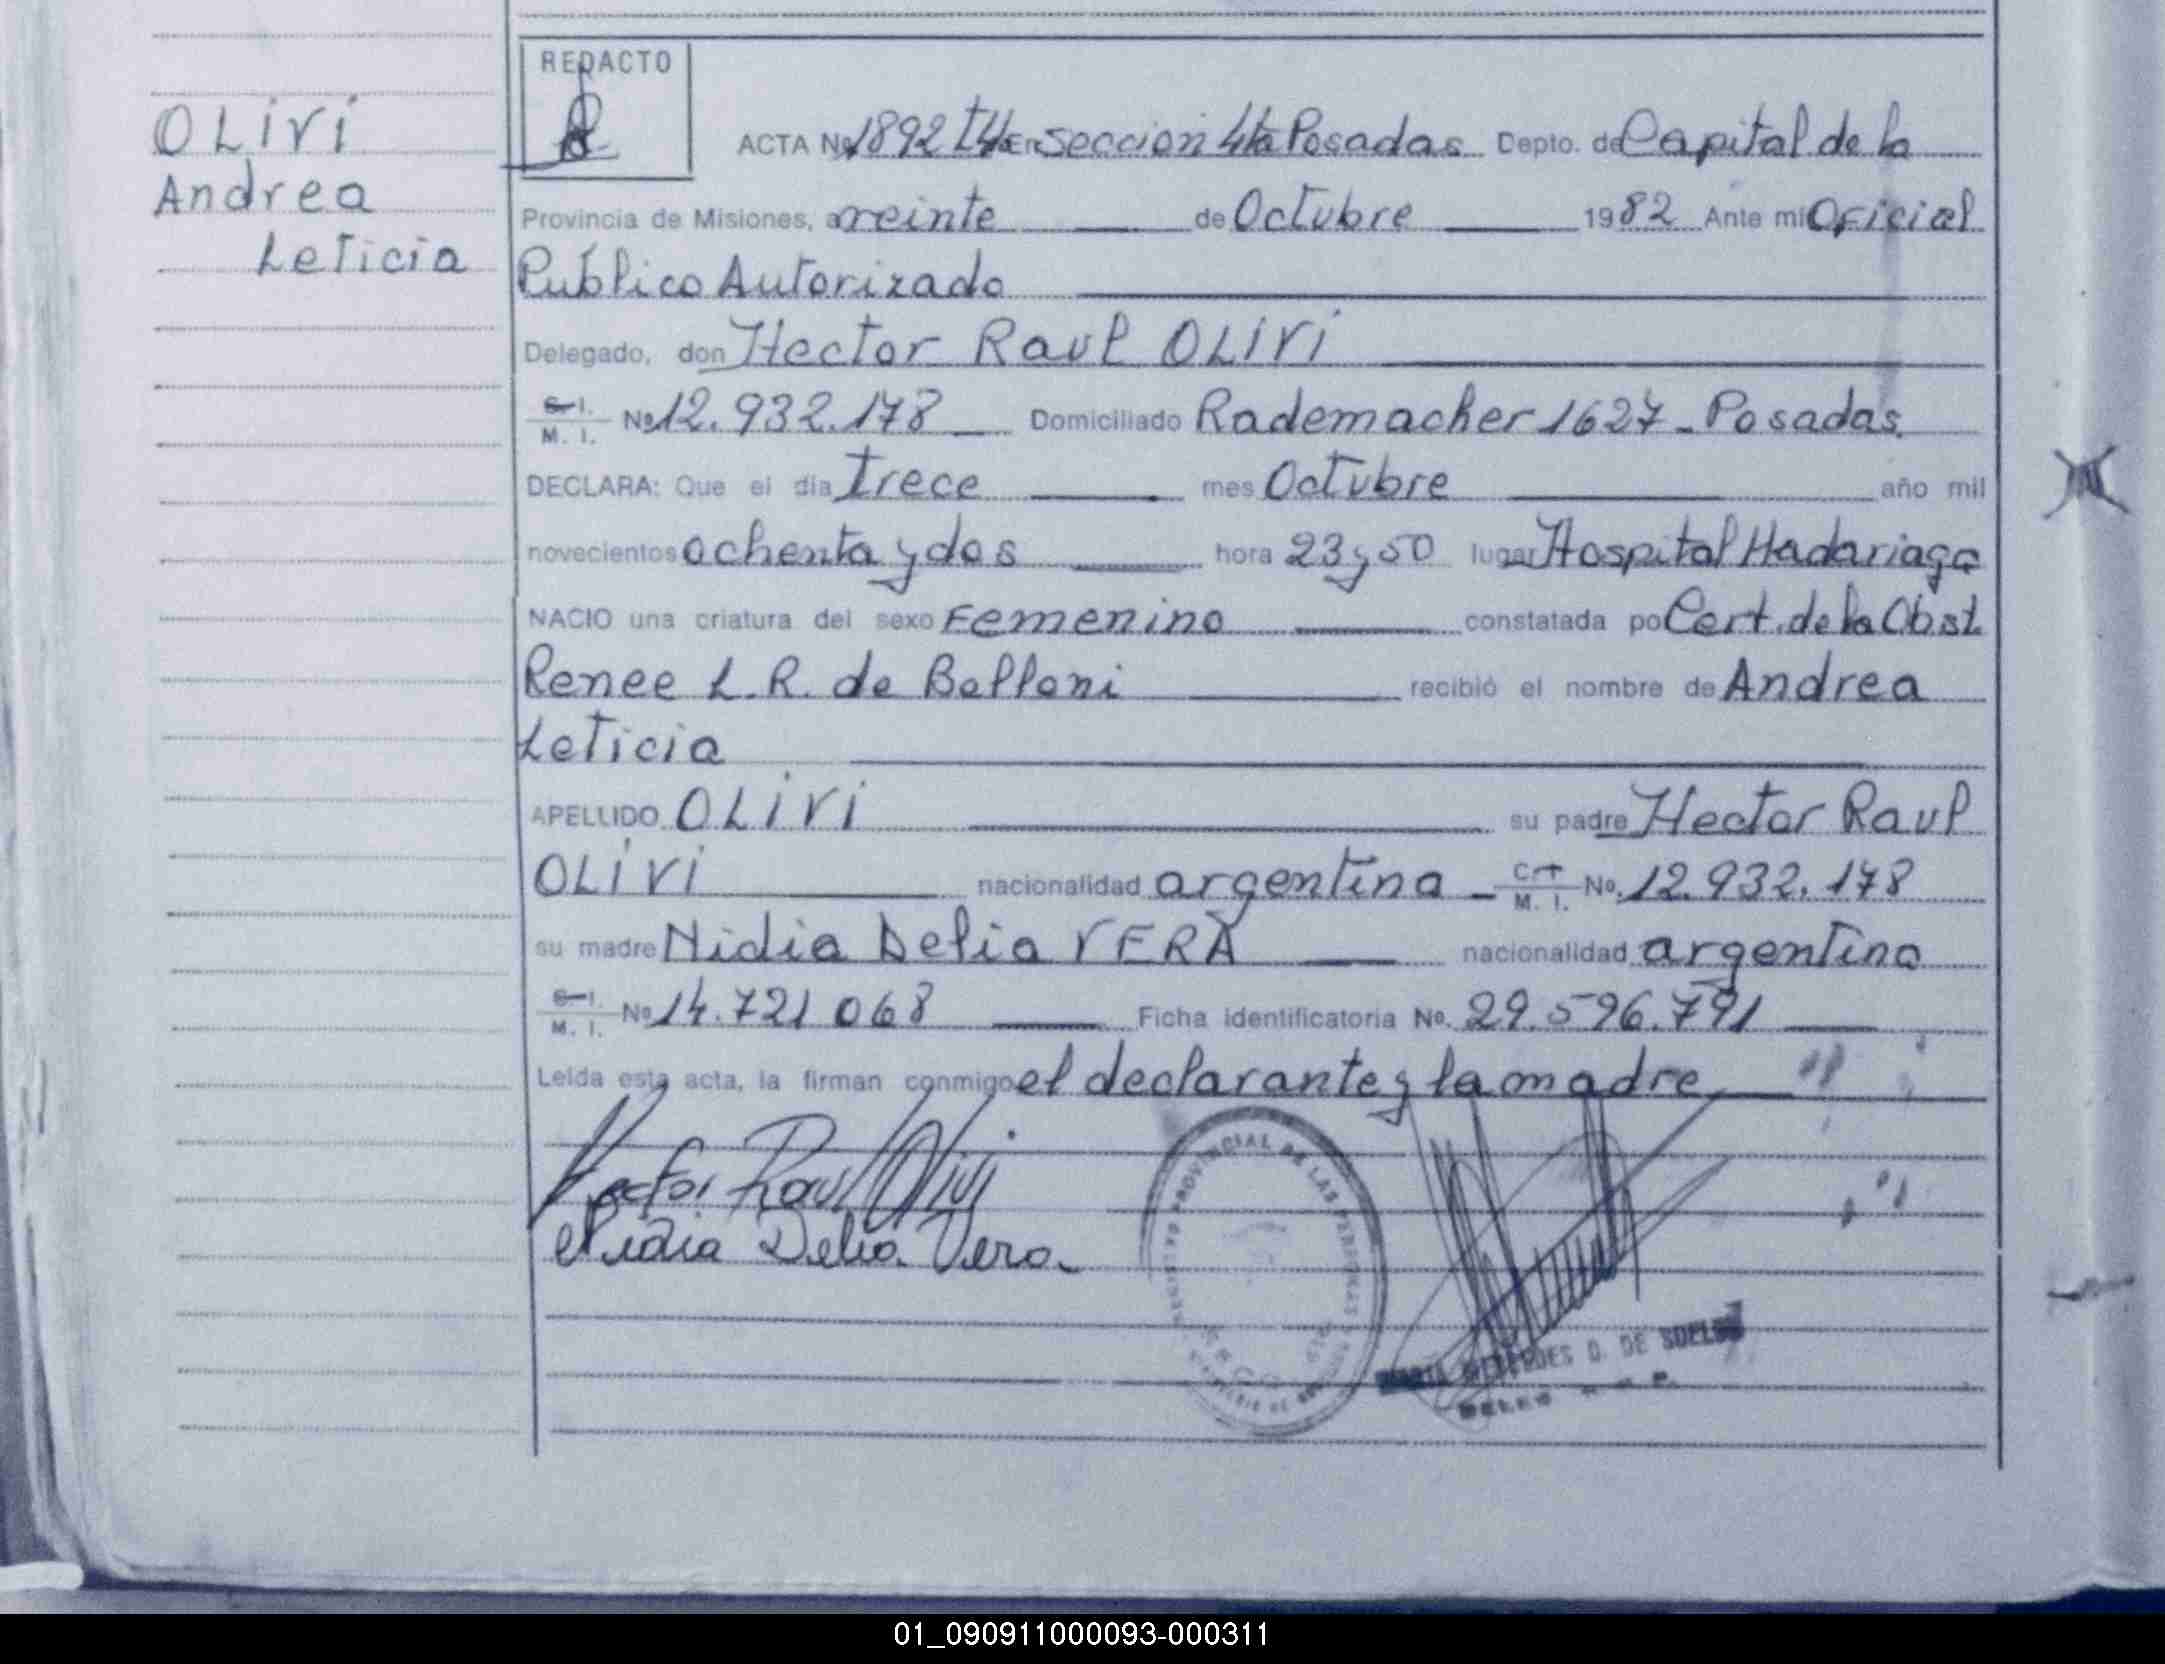 OLIVI
Andrea
Leticia
REDACTO
ACTA Nº 1892 T4 En Seccion 4ta Posadas Depto. de Capital de la
Provincia de Misiones, a veinte de Octubre 1982 Ante mi Oficial
Público Autorizado
Delegado, don Hector Raul OLIVI
C. I. M. I. Nº 12.932.178 Domiciliado Rademacher 1627 - Posadas.
DECLARA: Que el día trece mes Octubre año mil
novecientos ochenta y dos hora 23 y 50 lugar Hospital Madariaga
NACIO una criatura del sexo Femenino constatada po Cert. de la Obst.
Renee L. R. de Belloni recibió el nombre de Andrea
Leticia
APELLIDO OLIVI su padre Hector Raul
OLIVI nacionalidad argentina C. I. M. I. No. 12.932.178
su madre Nidia Delia VERA nacionalidad argentina
C. I. M. I. Nº 14.721.068 Ficha identificatoria No. 29.596.791
Leída esta acta, la firman conmigo el declarante y la madre
Hector Raul Olivi
Nidia Delia Vera
PROVINCIAL DE LAS PERSONAS
DE
01_090911000093-000311